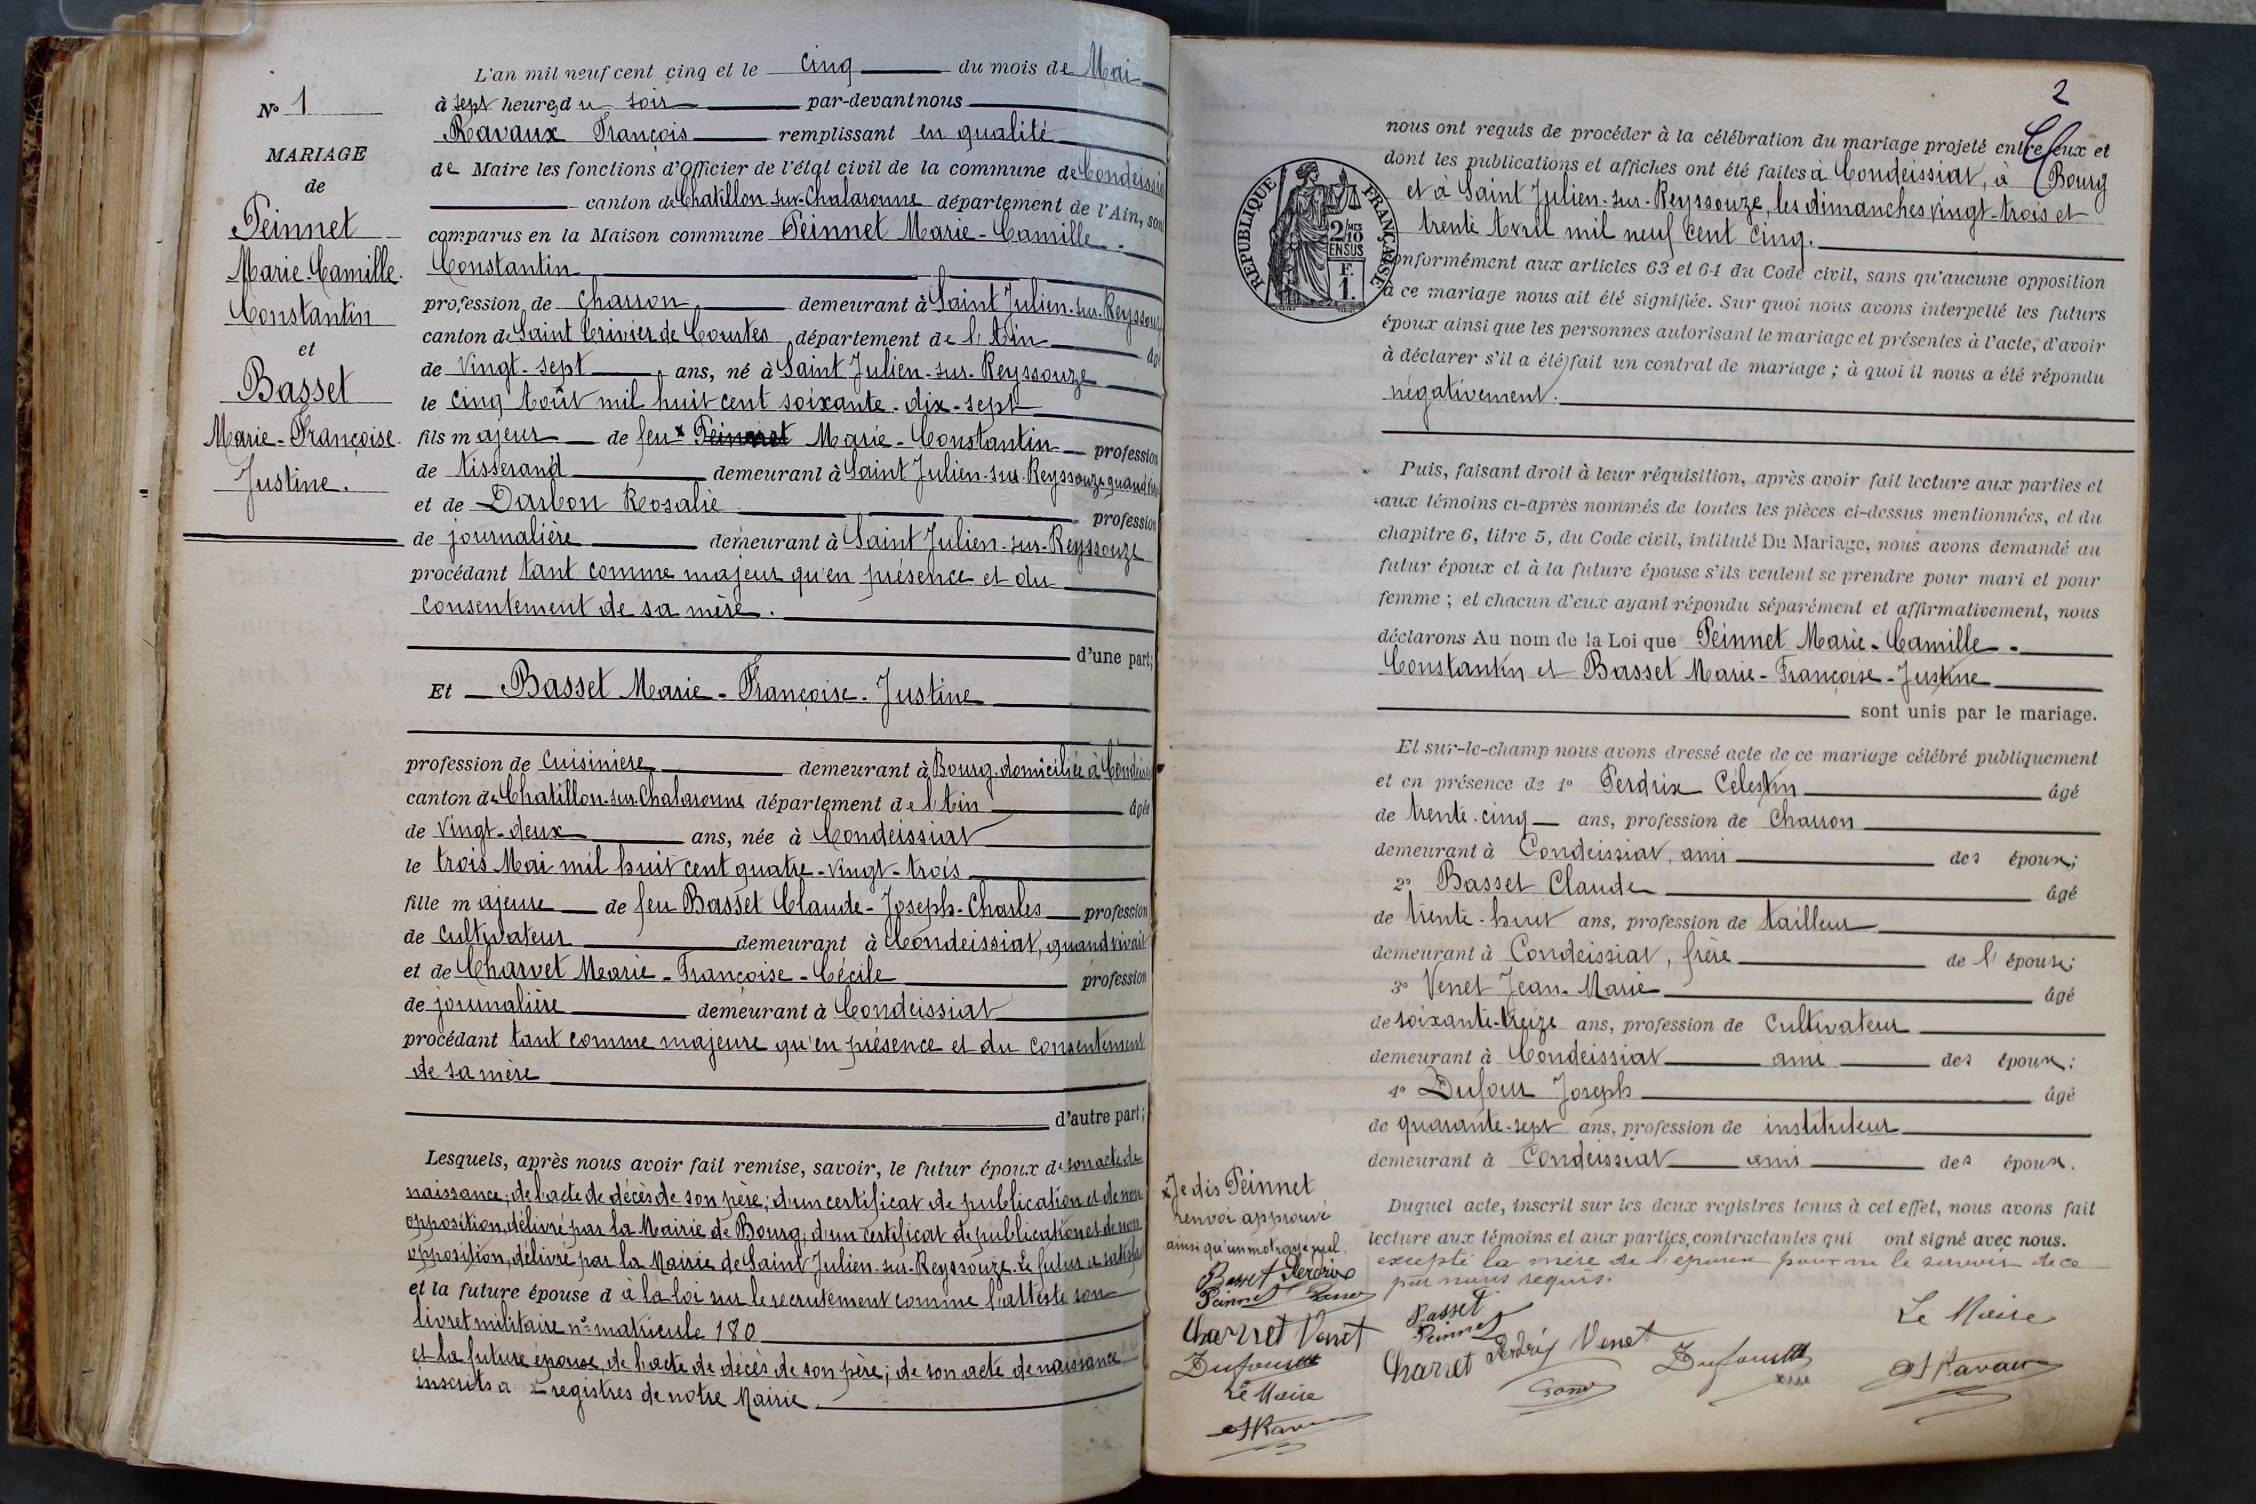 L'an mil neuf cent cinq et le cinq du mois de Mai
à sept heures du soir par-devant nous
Ravaux François remplissant en qualité
de Maire les fonctions d'Officier de l'état civil de la commune de Condeissiat
canton de Chatillon-sur-Chalaronne département de l'Ain, sont
comparus en la Maison commune Peinnet Marie-Camille-
Constantin
profession de charron demeurant à Saint Julien-sur-Reyssouze
canton de Saint Trivier de Courtes département de l'Ain âgé
de vingt-sept ans, né à Saint Julien-sur-Reyssouze
le cinq Août mil huit cent soixante-dix-sept
fils majeur de feu x Marie-Constantin profession
de tisserand demeurant à Saint Julien-sur-Reyssouze quand vivait
et de Darbon Rosalie profession
de journalière demeurant à Saint Julien-sur-Reyssouze
procédant tant comme majeur qu'en présence et du
consentement de sa mère.
d'une part;
Et Basset Marie-Françoise-Justine
profession de cuisinière demeurant à Bourg, domiciliée à Condeissiat
canton de Chatillon-sur-Chalaronne département de l'Ain âgée
de vingt-deux ans, née à Condeissiat
le trois Mai mil huit cent quatre-vingt-trois
fille majeure de feu Basset Claude-Joseph-Charles profession
de cultivateur demeurant à Condeissiat, quand vivait
et de Charvet Marie-Françoise-Cécile profession
de journalière demeurant à Condeissiat
procédant tant comme majeure qu'en présence et du consentement
de sa mère
d'autre part;
Lesquels, après nous avoir fait remise, savoir, le futur époux de son acte de
naissance; de l'acte de décès de son père; d'un certificat de publication et de non
opposition, délivré par la Mairie de Bourg; d'un certificat de publication et de non
opposition, délivré par la Mairie de Saint Julien-sur-Reyssouze. Le futur a satisfait
et la future épouse d à la loi sur le recrutement comme l'atteste son
livret militaire n° matricule 180
et la future épouse, de l'acte de décès de son père; de son acte de naissance
inscrits a registres de notre Mairie.
N° 1
MARIAGE
de
Peinnet
Marie-Camille-
Constantin
et
Basset
Marie-Françoise-
Justine.
2
nous ont requis de procéder à la célébration du mariage projeté entre eux et
dont les publications et affiches ont été faites à Condeissiat, à Bourg
et à Saint Julien-sur-Reyssouze, les dimanches vingt-trois et
trente Avril mil neuf cent cinq.
conformément aux articles 63 et 64 du Code civil, sans qu'aucune opposition
à ce mariage nous ait été signifiée. Sur quoi nous avons interpellé les futurs
époux ainsi que les personnes autorisant le mariage et présentes à l'acte, d'avoir
à déclarer s'il a été fait un contrat de mariage; à quoi il nous a été répondu
négativement.
RÉPUBLIQUE FRANÇAISE
2/10
MES
EN SUS
F.
1.
Puis, faisant droit à leur réquisition, après avoir fait lecture aux parties et
aux témoins ci-après nommés de toutes les pièces ci-dessus mentionnées, et du
chapitre 6, titre 5, du Code civil, intitulé Du Mariage, nous avons demandé au
futur époux et à la future épouse s'ils veulent se prendre pour mari et pour
femme; et chacun d'eux ayant répondu séparément et affirmativement, nous
déclarons Au nom de la Loi que Peinnet Marie-Camille-
Constantin et Basset Marie-Françoise-Justine
sont unis par le mariage.
Et sur-le-champ nous avons dressé acte de ce mariage célébré publiquement
et en présence de 1° Perdrix Célestin âgé
de trente-cinq ans, profession de Charron
demeurant à Condeissiat, ami des époux;
2° Basset Claude âgé
de trente-huit ans, profession de tailleur
demeurant à Condeissiat, frère de l'épouse;
3° Venet Jean-Marie âgé
de soixante-treize ans, profession de Cultivateur
demeurant à Condeissiat ami des époux;
4° Dufour Joseph âgé
de quarante-sept ans, profession de instituteur
demeurant à Condeissiat ami des époux.
Duquel acte, inscrit sur les deux registres tenus à cet effet, nous avons fait
lecture aux témoins et aux parties contractantes qui ont signé avec nous.
excepté la mère de l'époux pour ne le savoir de ce
par nous requis.
Basset
Peinnet
Charvet Perdrix Venet Dufour
Le Maire
Ravaux
x Je dis Peinnet
renvoi approuvé
ainsi qu'un mot rayé nul.
Basset Perdrix
Peinnet
Charvet Venet
Dufour
Le Maire